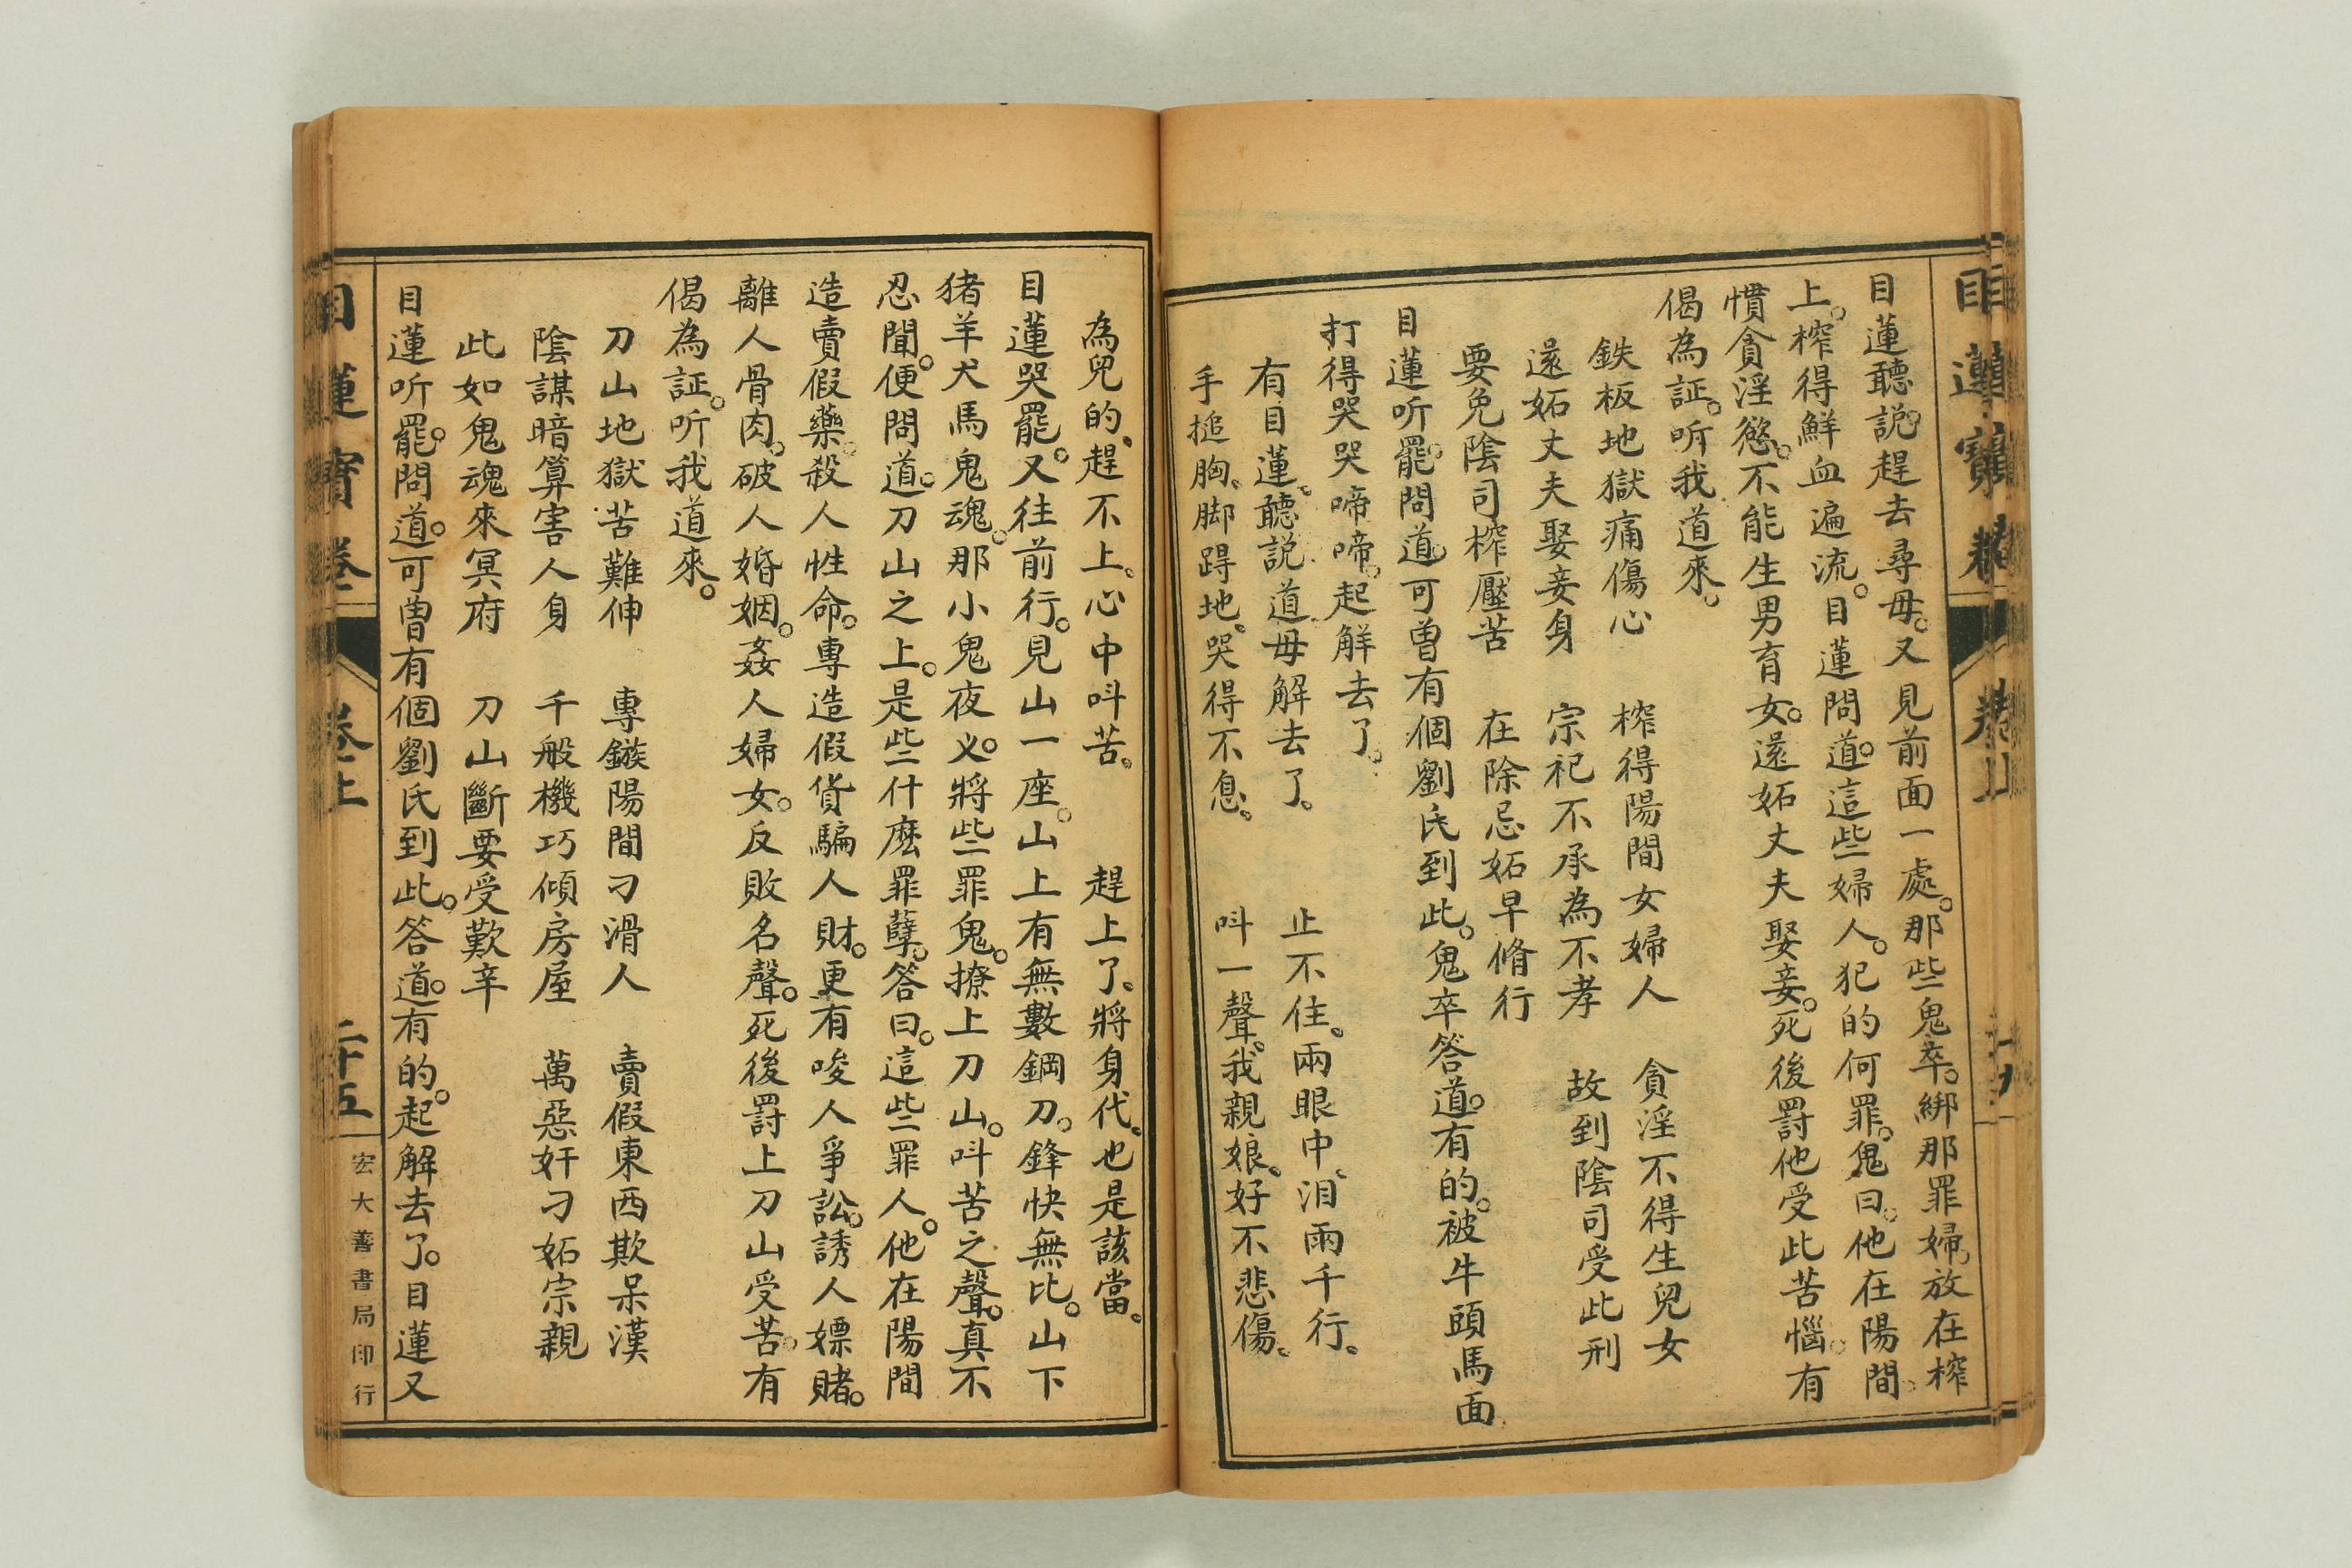 目蓮聽説。趕去尋母。又見前面一處。那些鬼卒。綁那罪婦。放在榨
上。榨得鮮血遍流。目蓮問道。這些婦人。犯的何罪。鬼曰。他在陽間。
慣貪淫慾。不能生男育女。還妬丈夫娶妾。死後罸他受此苦惱。有
偈為証。听我道來。
鉄板地獄痛傷心　榨得陽間女婦人　貪淫不得生兒女
還妬丈夫娶妾身　宗祀不承為不孝　故到陰司受此刑
要免陰司榨壓苦　在除忌妬早脩行
目蓮听罷。問道。可曾有個劉氏到此。鬼卒答道。有的。被牛頭馬面
打得哭哭啼啼。起解去了。
有目蓮。聽説道母解去了。　止不住。兩眼中。泪兩千行。
手搥胸。脚踭地。哭得不息。　呌一聲。我親娘。好不悲傷。
為兒的。趕不上。心中呌苦。　趕上了。將身代。也是該當。
目蓮哭罷。又往前行。見山一座。山上有無數鋼刀。鋒快無比。山下
猪羊犬馬鬼魂。那小鬼夜乂。將些罪鬼。撩上刀山。呌苦之聲。真不
忍聞。便問道。刀山之上。是些什麽罪孽。答曰。這些罪人。他在陽間
造賣假藥。殺人性命。專造假貨騙人財。更有唆人爭訟。誘人嫖賭。
離人骨肉。破人婚姻。姦人婦女。反敗名聲。死後罸上刀山受苦。有
偈為証。听我道來。
刀山地獄苦難伸　專鏃陽間刁滑人　賣假東西欺呆漢
陰謀暗算害人身　千般機巧傾房屋　萬惡奸刁妬宗親
此如鬼魂來冥府　刀山斷要受歎辛
目蓮听罷。問道。可曾有個劉氏到此。答道。有的。起解去了。目蓮又
目蓮寶卷　卷上　二十五　宏大善書局印行